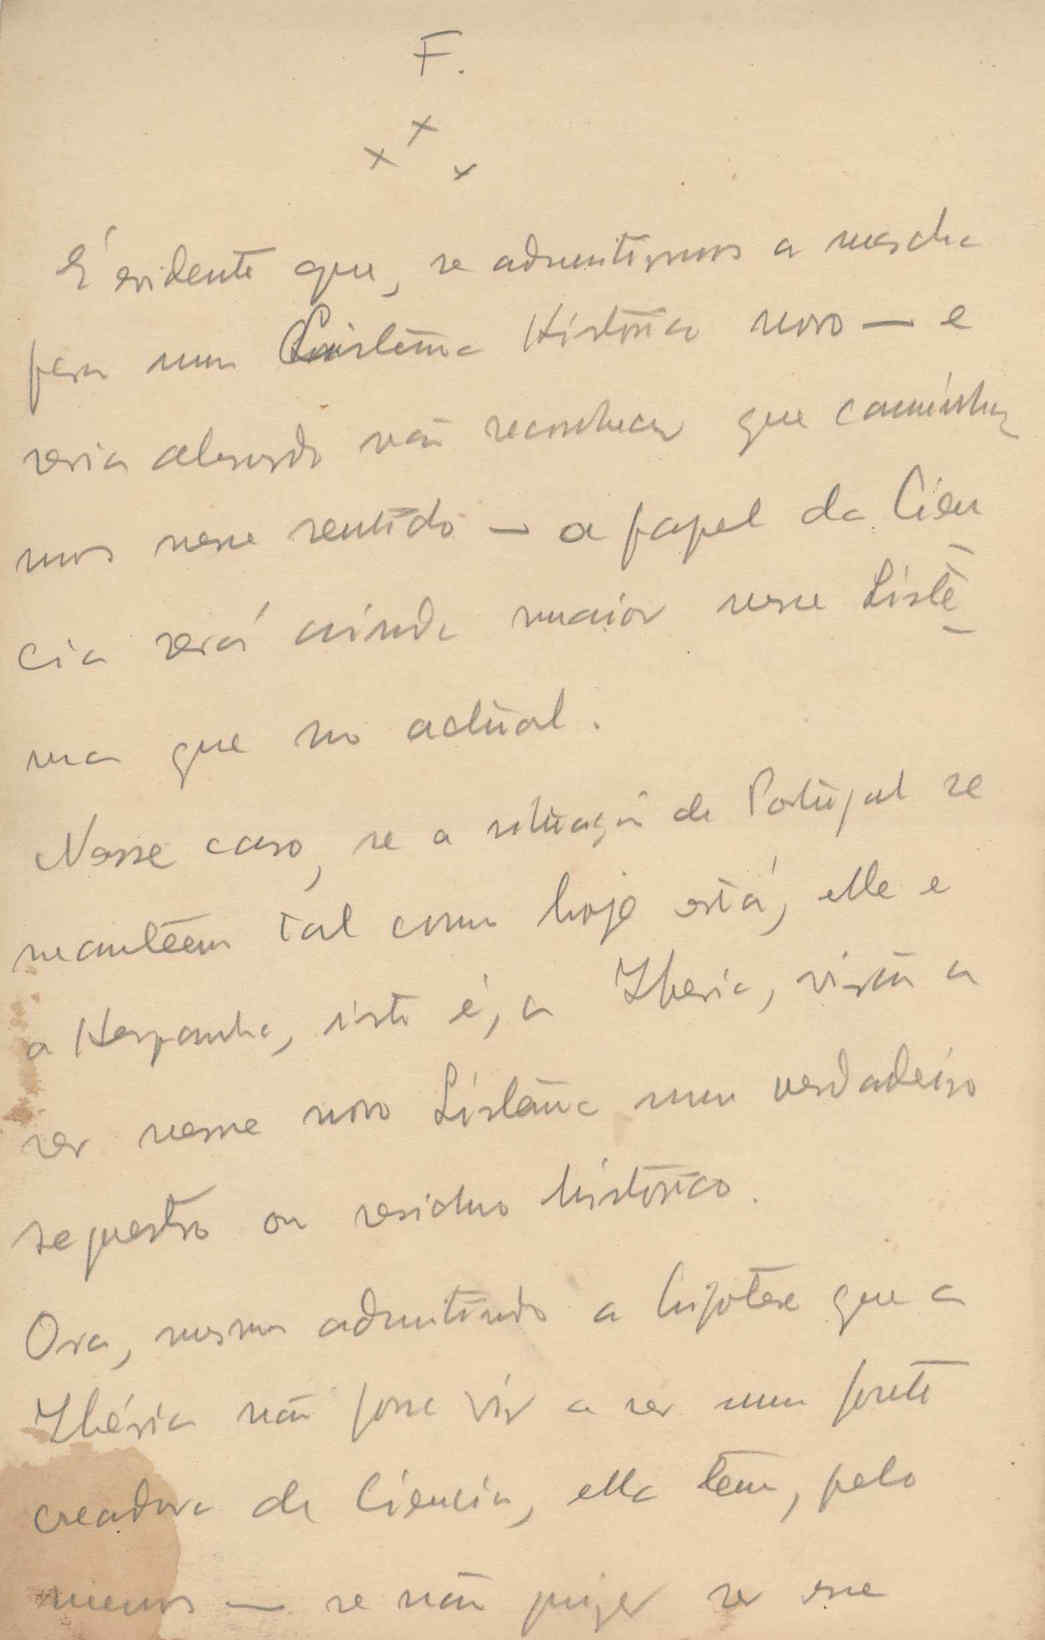 F.
× × ×
É evidente que, se admitirmos a marcha
para um Sistema Histórico novo — e
seria absurdo não reconhecer que caminha
mos nesse sentido — o papel da Cien
cia será ainda maior nesse Siste
ma que no actual.
Nesse caso, se a situação de Portugal se
mantêem tal como hoje está, elle e
a Hespanha, isto é, a Iberia, virão a
ser nesse novo Sistema um verdadeiro
sequestro ou residuo histórico.
Ora, mesmo admitindo a hipotese que a
Ibéria não possa vir a ser uma forte
creadora de Ciencia, ella tem, pelo
menos — se não quizer ser esse